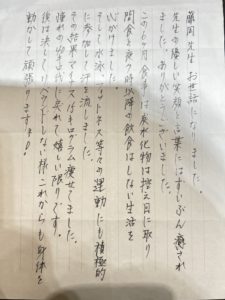 藤岡先生 お世話になりました。
先生の優しい笑顔と言葉にはずいぶん癒され
ました。ありがとうございました。
この6ヶ月食事は炭水化物は控え目に取り
間食と夜9時以降の飲食はしない生活を
心がけました。
そして水泳、フィットネス等々の運動にも積極的
に参加して汗を流しました。
その結果マイナス8キログラム痩せてました。
憧れの48キロ代に戻れて嬉しい限りです。
後は決してリバウンドしない様これからも身体を
動かして頑張ります!